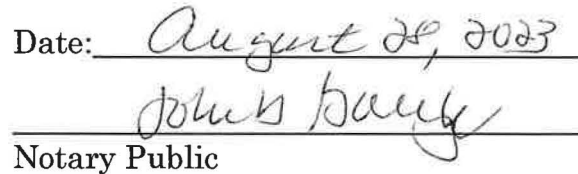 Date: August 28, 2023
John
Notary Public